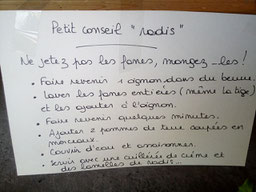 Petit conseil "radis"
Ne jetez pas les fanes, mangez-les !
• Faire revenir 1 oignon dans du beurre,
• Laver les fanes entières (même la tige)
et les ajouter à l'oignon.
• Faire revenir quelques minutes.
• Ajouter 2 pommes de terre coupées en
morceaux.
• Couvrir d'eau et assaisonner.
• Servir avec une cuillérée de crème et
des lamelles de radis...